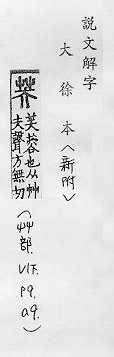 説文解字
大徐本〈新附〉
芙
芙蓉也从艸
夫聲方無切
(艸部. V1下. p9. a9.)